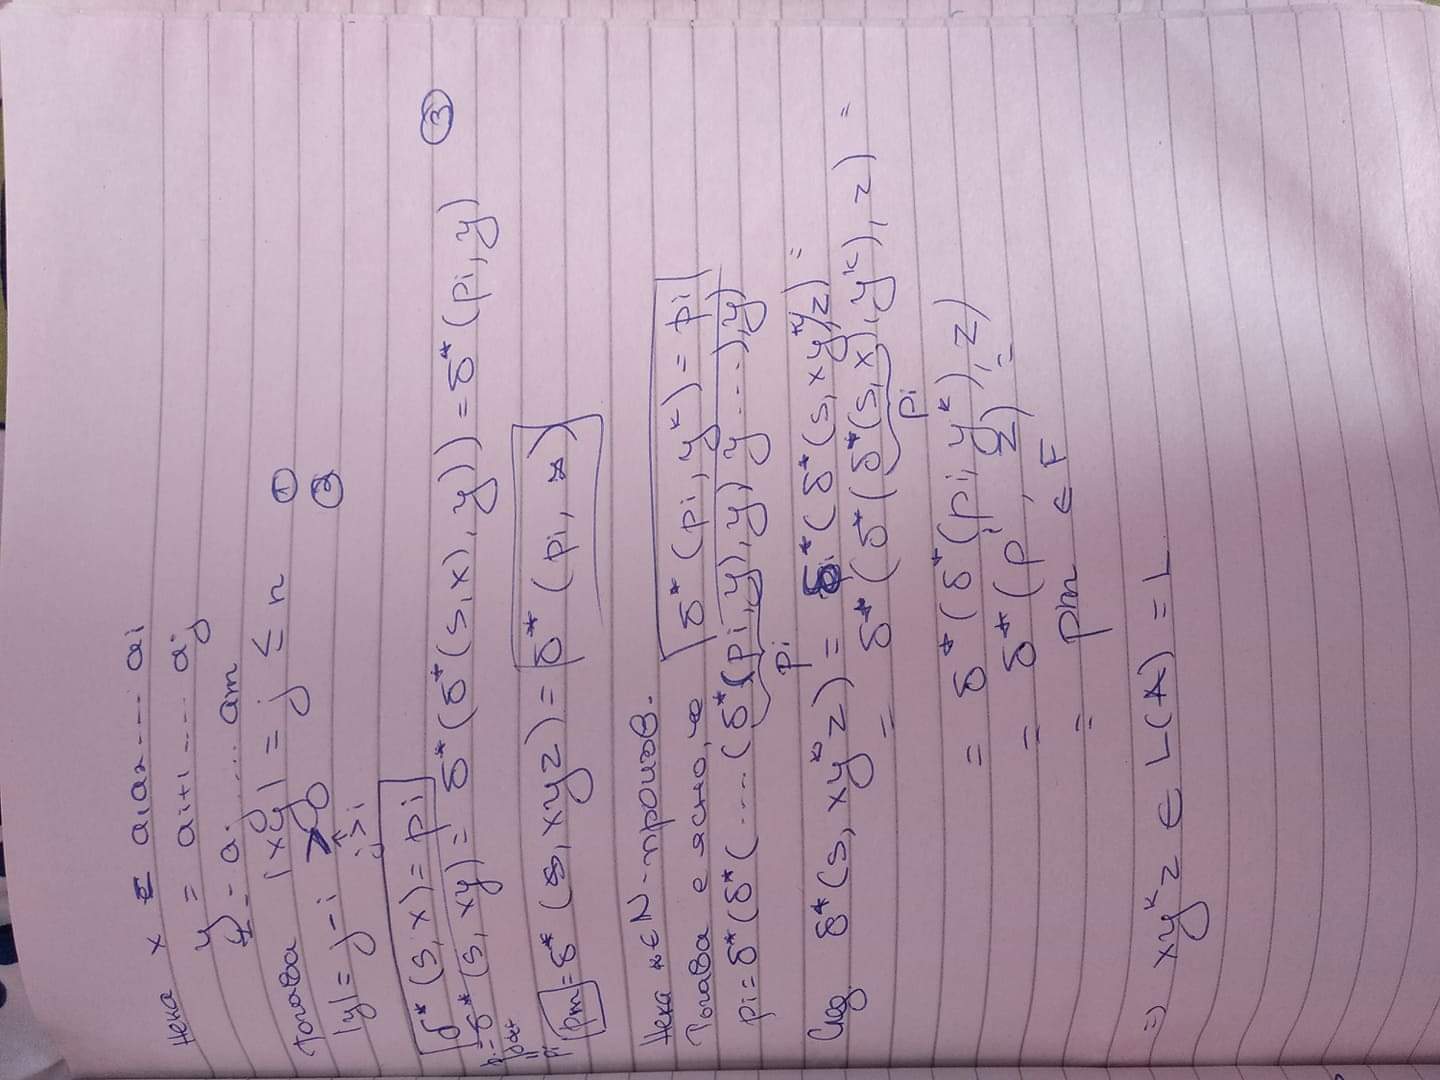 Нека x = a₁a₂.... ai
y = ai+1 .... aj
z = a.... am
Тогава |xy| = j ≤ n ①
|y| = j - i > 0 ②
j > i
δ*(s, x) = pi
δ*(s, xy) = δ*(δ*(s, x), y)) = δ*(pi, y) ③
pi
pm = δ*(s, xyz) = δ*(pi, z)
Нека k ∈ N - произв.
Тогава е ясно, че δ*(pi, yᵏ) = pi
pi = δ*(δ*(.... (δ*(pi, y), y) y ....), y)
pi
След. δ*(s, xyᵏz) = δ*(δ*(s, xyᵏ), z) =
= δ*(δ*(δ*(s, x), yᵏ), z) =
pi
= δ*(δ*(pi, yᵏ), z)
= δ*(pi, z) =
= pm ∈ F
=> xyᵏz ∈ L(A) = L